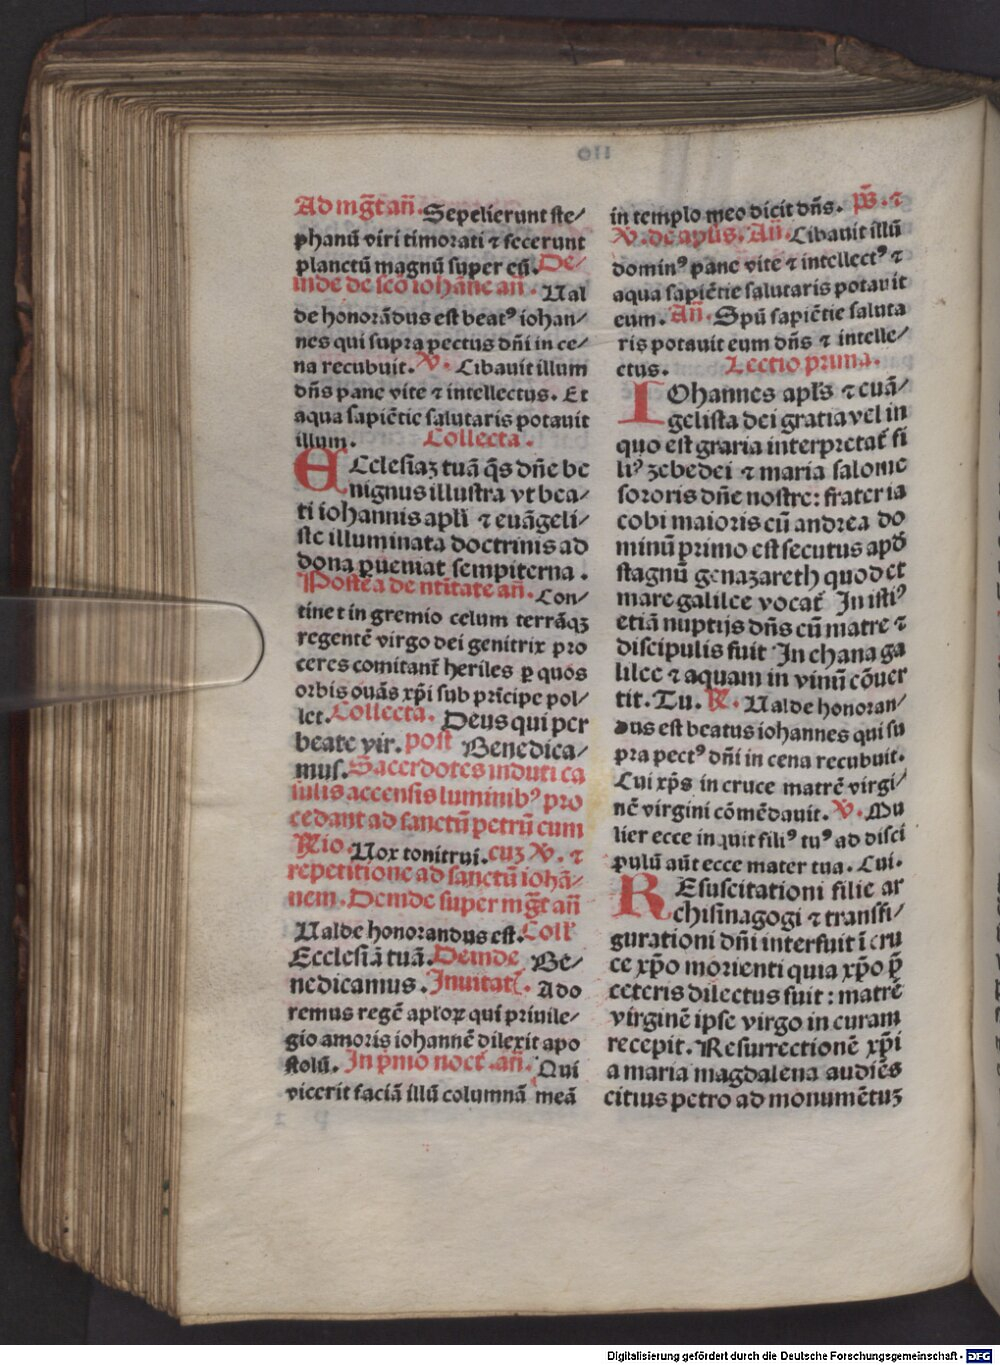 Ad mgt̄ an̄. Sepelierunt ste-
phanū viri timorati ⁊ fecerunt
planctū magnū super eū. De/
inde de scō iohāne an̄. Ual
de honorādus est beatꝰ iohan/
nes qui supra pectus dn̄i in ce/
na recubuit. V̄. Cibauit illum
dn̄s pane vite ⁊ intellectus. Et
aqua sapiētie salutaris potauit
illum. Collecta.
ECclesiaꝫ tuā q̄s dn̄e be
nignus illustra vt bea/
ti iohannis apl̄i ⁊ euāgeli/
ste illuminata doctrinis ad
dona ꝑueniat sempiterna.
Postea de ntītate an̄. Con/
tinet in gremio celum terrāqꝫ
regentē virgo dei genitrix pro
ceres comitant̄ heriles ꝑ quos
orbis ouās xp̄i sub prīcipe pol/
let. Collecta. Deus qui per
beate vir. post Benedica/
mus. Sacerdotes induti ca
sulis accensis luminibꝰ pro
cedant ad sanctū petrū cum
Rio. Uox tonitrui. cuꝫ V̄. ⁊
repetitione ad sanctū iohā/
nem. Deinde super mgt̄ an̄
Ualde honorandus est. Coll̄
Ecclesiā tuā. Deinde Be/
nedicamus. Inuitat̄. Ado
remus regē aploꝝ qui priuile/
gio amoris iohannē dilexit apo
stolū. In pᵐo noct̄. an̄. Qui
vicerit faciā illū columnā meā
110
in templo meo dicit dn̄s. p̄s. ⁊
V̄. de apl̄is. An̄. Cibauit illū
dominꝰ pane vite ⁊ intellectꝰ ⁊
aqua sapiētie salutaris potauit
eum. An̄. Spū sapiētie saluta
ris potauit eum dn̄s ⁊ intelle/
ctus. Lectio prima.
IOhannes apl̄s ⁊ euā/
gelista dei gratia vel in
quo est graria interpretat̄ fi
liꝰ zebedei ⁊ maria salome
sororis dn̄e nostre: frater ia
cobi maioris cū andrea do
minū primo est secutus apd̄
stagnū genazareth quod et
mare galilee vocat̄ In istiꝰ
etiā nuptijs dn̄s cū matre ⁊
discipulis fuit In chana ga
lilee ⁊ aquam in vinū cōuer
tit. Tu. R̄. Ualde honoran/
dus est beatus iohannes qui su
pra pectꝰ dn̄i in cena recubuit.
Cui xp̄s in cruce matrē virgi/
nē virgini cōmēdauit. V̄. Mu
lier ecce inquit filiꝰ tuꝰ ad disci
pulū aūt ecce mater tua. Cui.
REsuscitationi filie ar
chisinagogi ⁊ transfi/
gurationi dn̄i interfuit ī cru
ce xp̄o morienti quia xp̄o p̄
ceteris dilectus fuit: matrē
virginē ipse virgo in curam
recepit. Resurrectionē xp̄i
a maria magdalena audiēs
citius petro ad monumētuꝫ
Digitalisierung gefördert durch die Deutsche Forschungsgemeinschaft - DFG